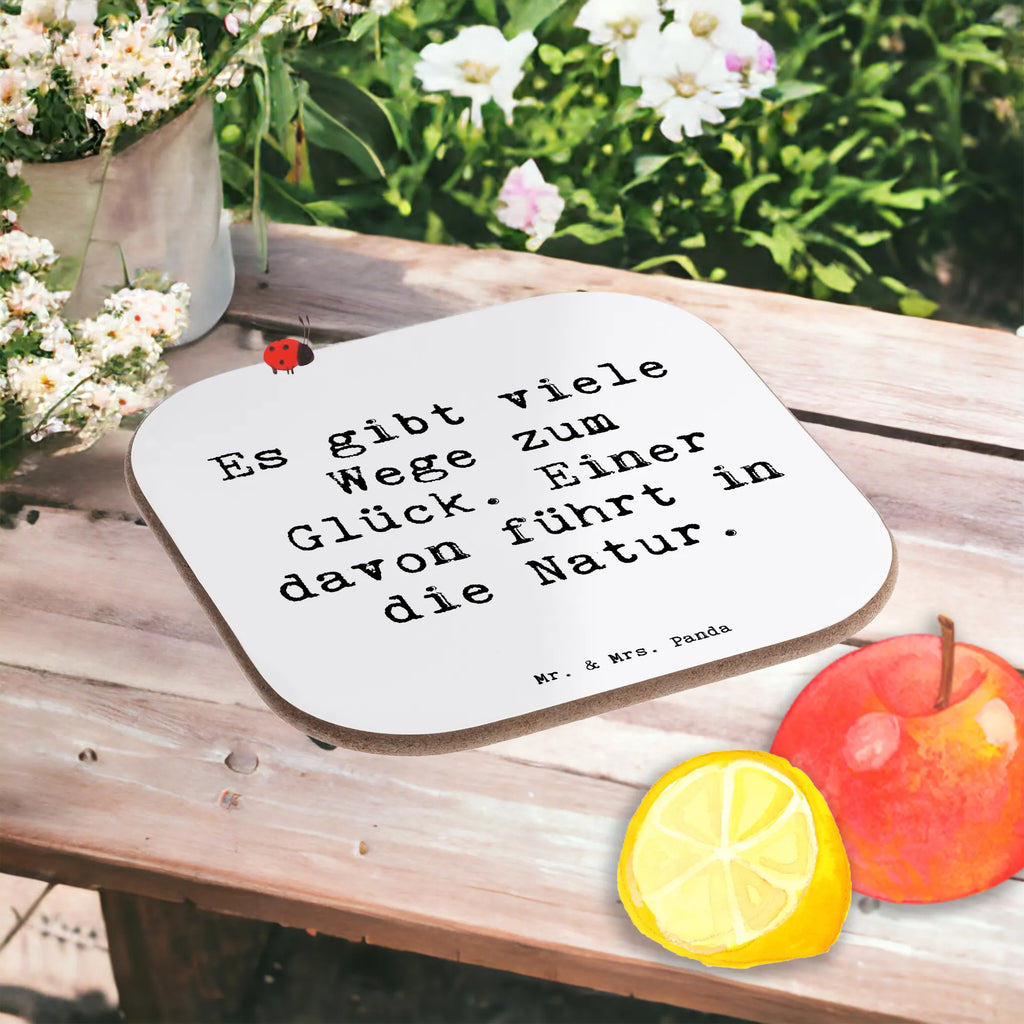 Es gibt viele
Wege zum
Glück. Einer
davon führt in
die Natur.
Mr. & Mrs. Panda